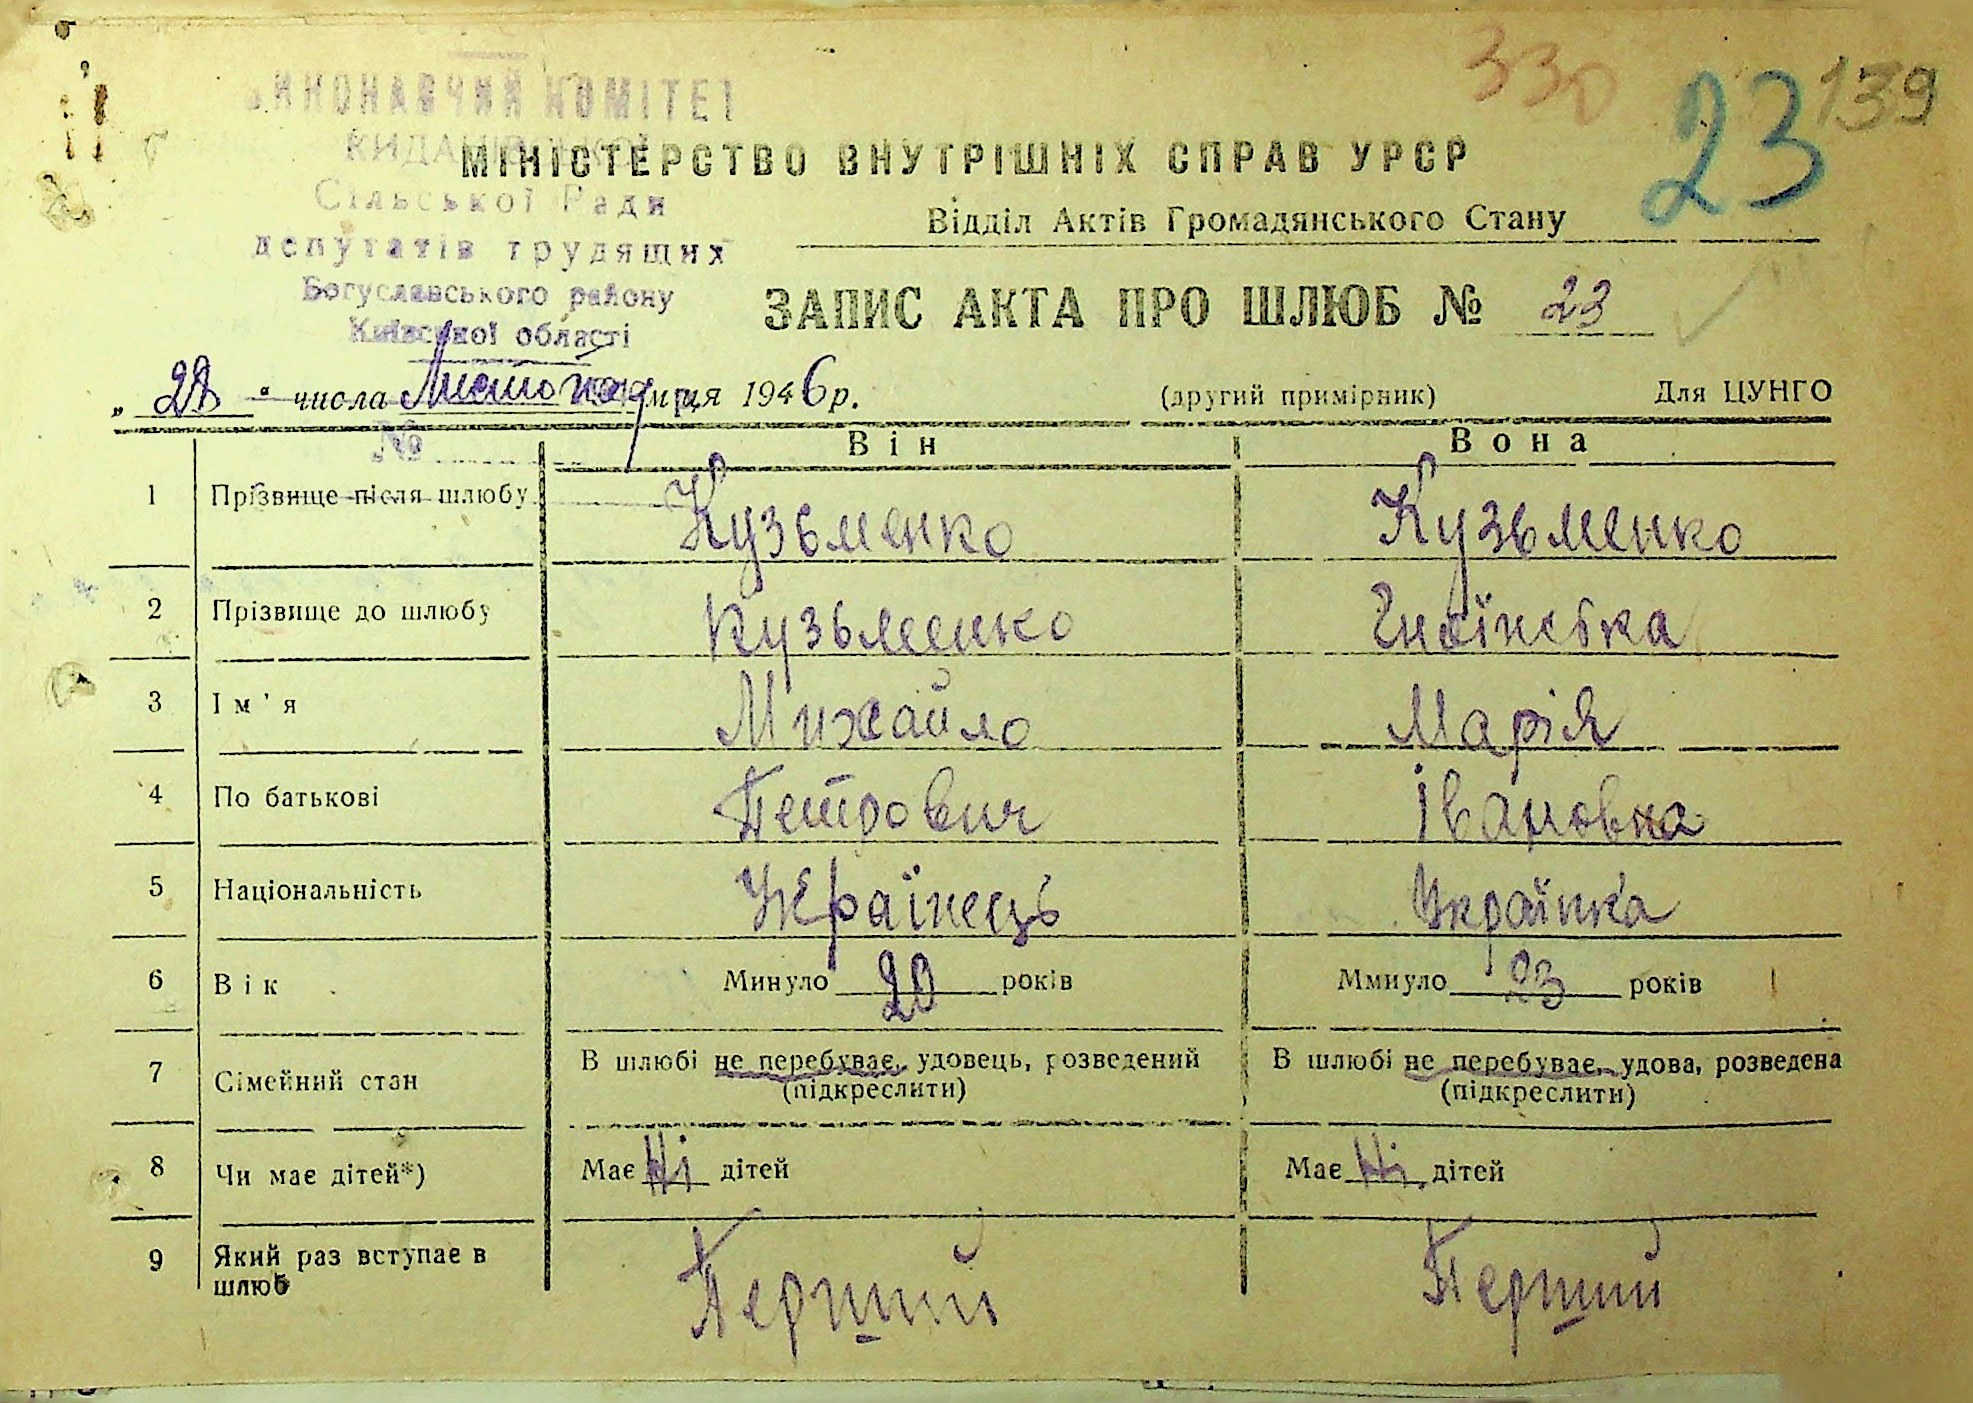 330
23
139
ВИКОНАВЧИЙ КОМІТЕТ
Сільської Ради
депутатів трудящих
Богуславського району
Київської області
№
МІНІСТЕРСТВО ВНУТРІШНІХ СПРАВ УРСР
Відділ Актів Громадянського Стану
ЗАПИС АКТА ПРО ШЛЮБ № 23
„ 28 " числа Листопад м-ця 1946 р. (другий примірник) Для ЦУНГО
Він Вона
1 Прізвище після шлюбу Кузьменко Кузьменко
2 Прізвище до шлюбу Кузьменко
3 Ім'я Михайло Марія
4 По батькові Петрович Івановна
5 Національність Українець Українка
6 Вік Минуло 20 років Ммнуло 23 років
7 Сімейний стан В шлюбі не перебуває, удовець, розведений В шлюбі не перебуває, удова, розведена
(підкреслити) (підкреслити)
8 Чи має дітей*) Має Ні дітей Має Ні дітей
9 Який раз вступає в шлюб Перший Перший